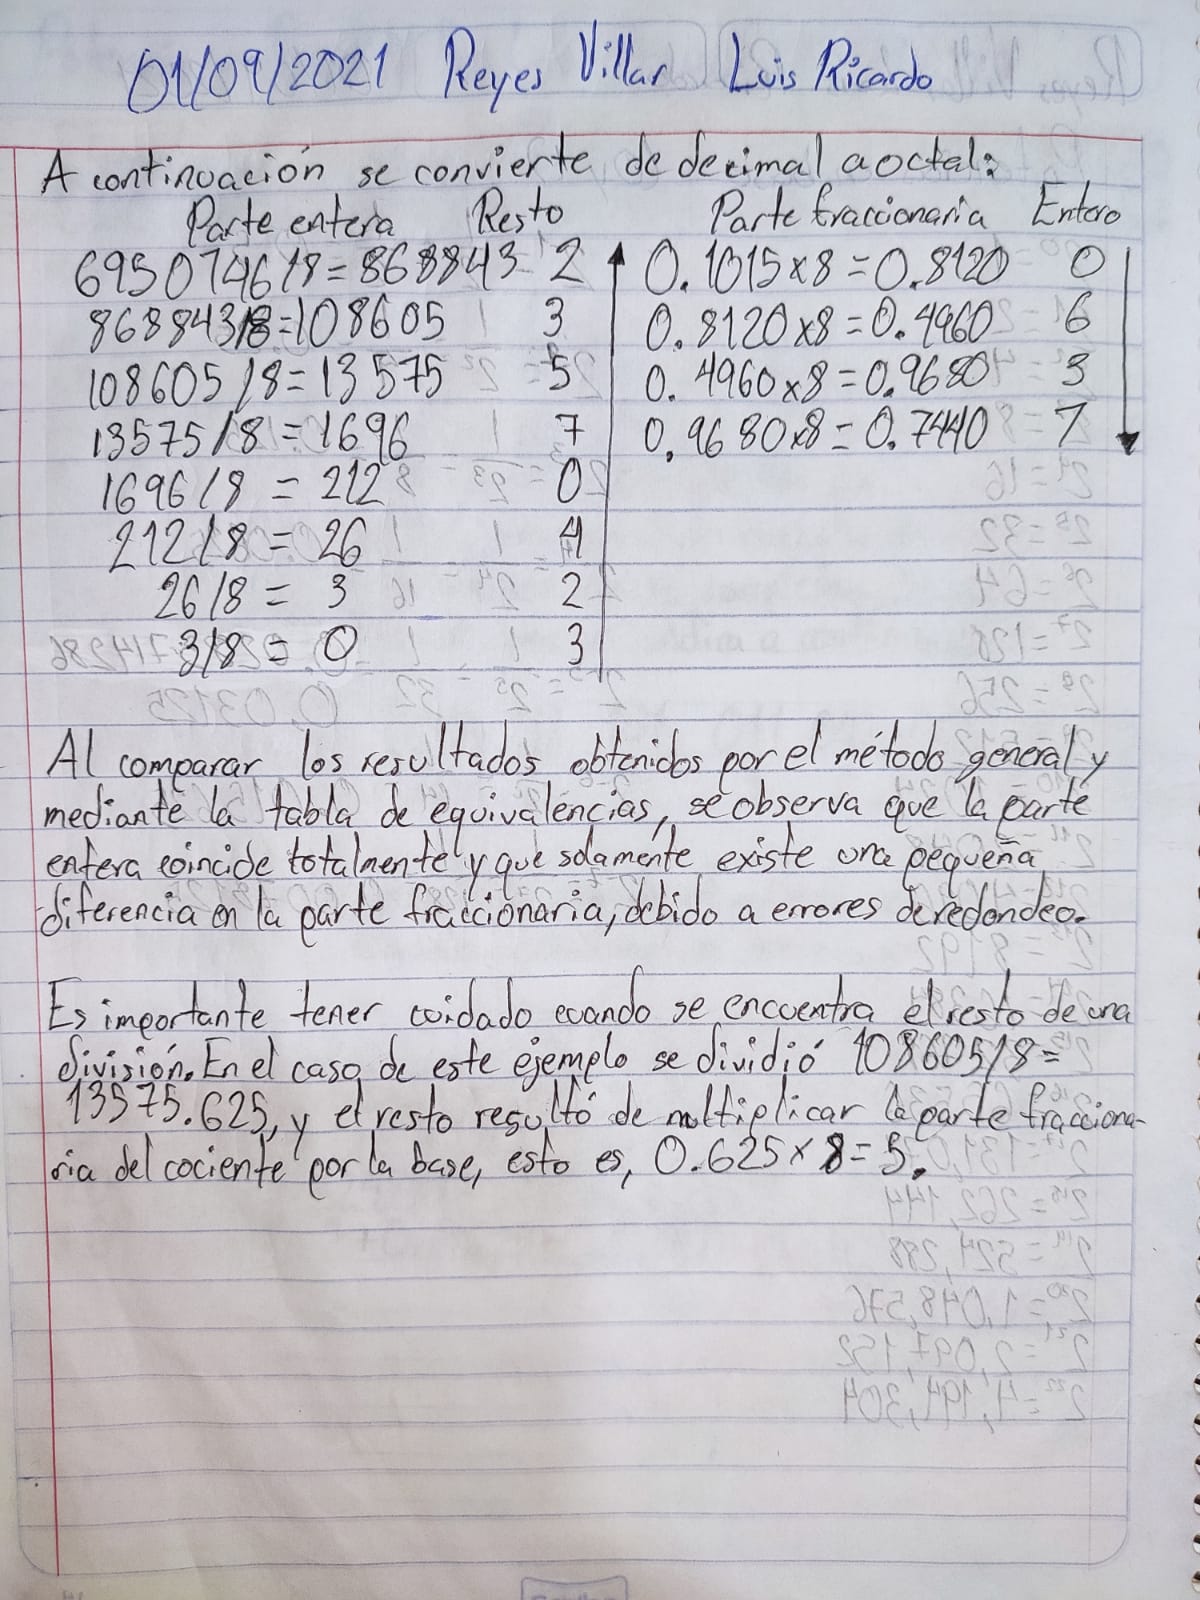 01/09/2021 Reyes Villar Luis Ricardo
A continuación se convierte de decimal a octal:
Parte entera Resto Parte fraccionaria Entero
6950746/8=868843 2 0.1015x8=0.8120 0
868843/8=108605 3 0.8120x8=0.4960 6
108605/8=13575 5 0.4960x8=0.9680 3
13575/8=1696 7 0.9680x8=0.7440 7
1696/8=212 0
212/8=26 4
26/8=3 2
3/8=0 3
Al comparar los resultados obtenidos por el método general y
mediante la tabla de equivalencias, se observa que la parte
entera coincide totalmente y que solamente existe una pequeña
diferencia en la parte fraccionaria, debido a errores de redondeo.
Es importante tener cuidado cuando se encuentra el resto de una
división. En el caso de este ejemplo se dividió 108605/8=
13575.625, y el resto resultó de multiplicar la parte fracciona-
ria del cociente por la base, esto es, 0.625x8=5.